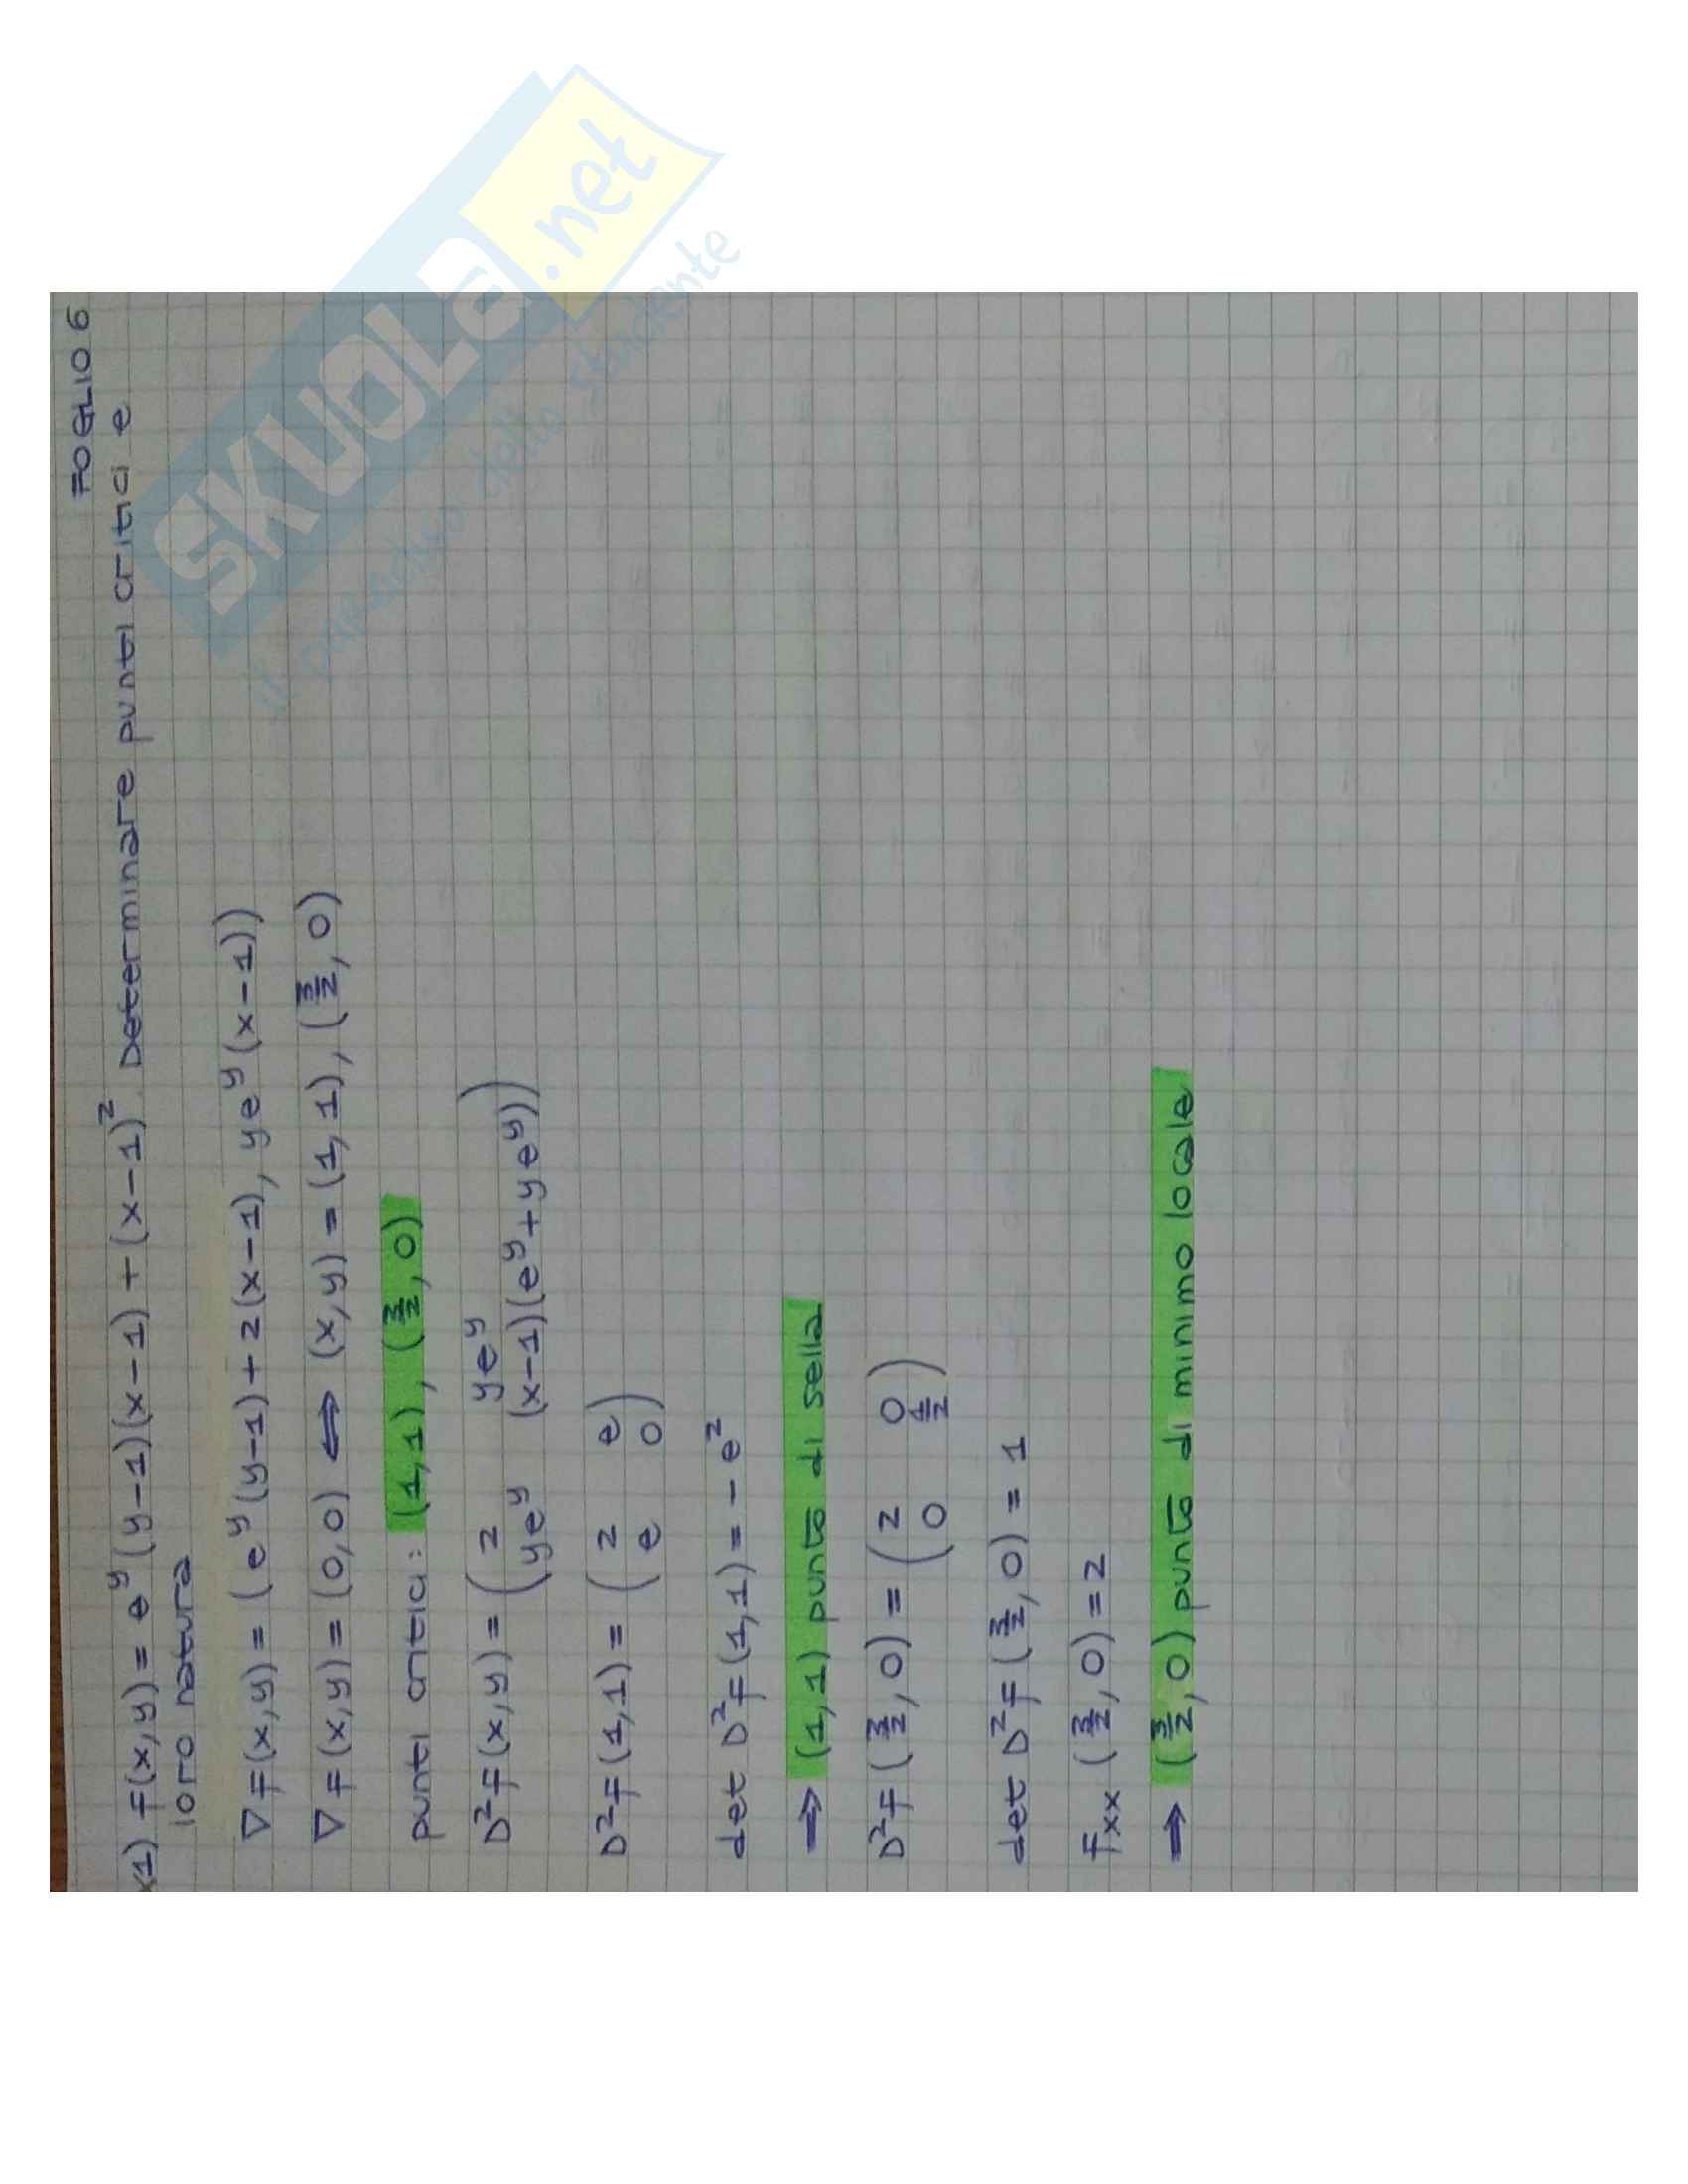 FOGLIO 6
x1) f(x,y) = e^y (y-1)(x-1) + (x-1)^2. Determinare punti critici e
loro natura
∇f(x,y) = (e^y (y-1) + 2(x-1), ye^y (x-1))
∇f(x,y) = (0,0) ⟺ (x,y) = (1,1), (3/2, 0)
punti critici: (1,1), (3/2, 0)
D²f(x,y) = ( 2 ye^y
ye^y (x-1)(e^y + ye^y) )
D²f(1,1) = ( 2 e
e 0 )
det D²f(1,1) = -e²
⟹ (1,1) punto di sella
D²f(3/2, 0) = ( 2 0
0 1/2 )
det D²f(3/2, 0) = 1
fxx(3/2, 0) = 2
⟹ (3/2, 0) punto di minimo locale
SKUOLA.net
il paradiso dello studente